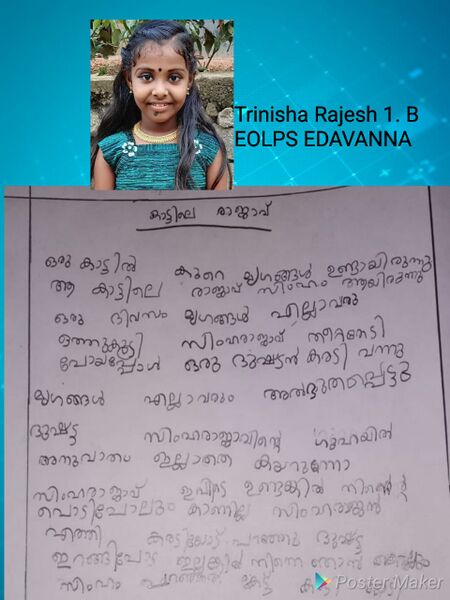 Trinisha Rajesh 1. B
EOLPS EDAVANNA
കാട്ടിലെ രാജാവ്
ഒരു കാട്ടിൽ കുറെ മൃഗങ്ങൾ ഉണ്ടായിരുന്നു
ആ കാട്ടിലെ രാജാവ് സിംഹം ആയിരുന്നു
ഒരു ദിവസം മൃഗങ്ങൾ എല്ലാവരു
ഒത്തുകൂടി സിംഹരാജാവ് തീറ്റതേടി
പോയപ്പോൾ ഒരു ദുഷ്ടൻ കരടി വന്നു
മൃഗങ്ങൾ എല്ലാവരും അത്ഭുതപ്പെട്ടു
ദുഷ്ട്ട സിംഹരാജാവിന്റെ ഗുഹയിൽ
അനുവാതം ഇല്ലാതെ കയറുന്നോ
സിംഹരാജാവ് ഇവിടെ ഉണ്ടങ്കിൽ
പൊടിപോലും കാണില്ല
എത്തി കരടിയോട് പറഞ്ഞു ദുഷ്ട്ട
ഇറങ്ങിപോട ഇല്ലങ്കിൽ നിന്നെ ഞാൻ
സിംഹം
PosterMaker